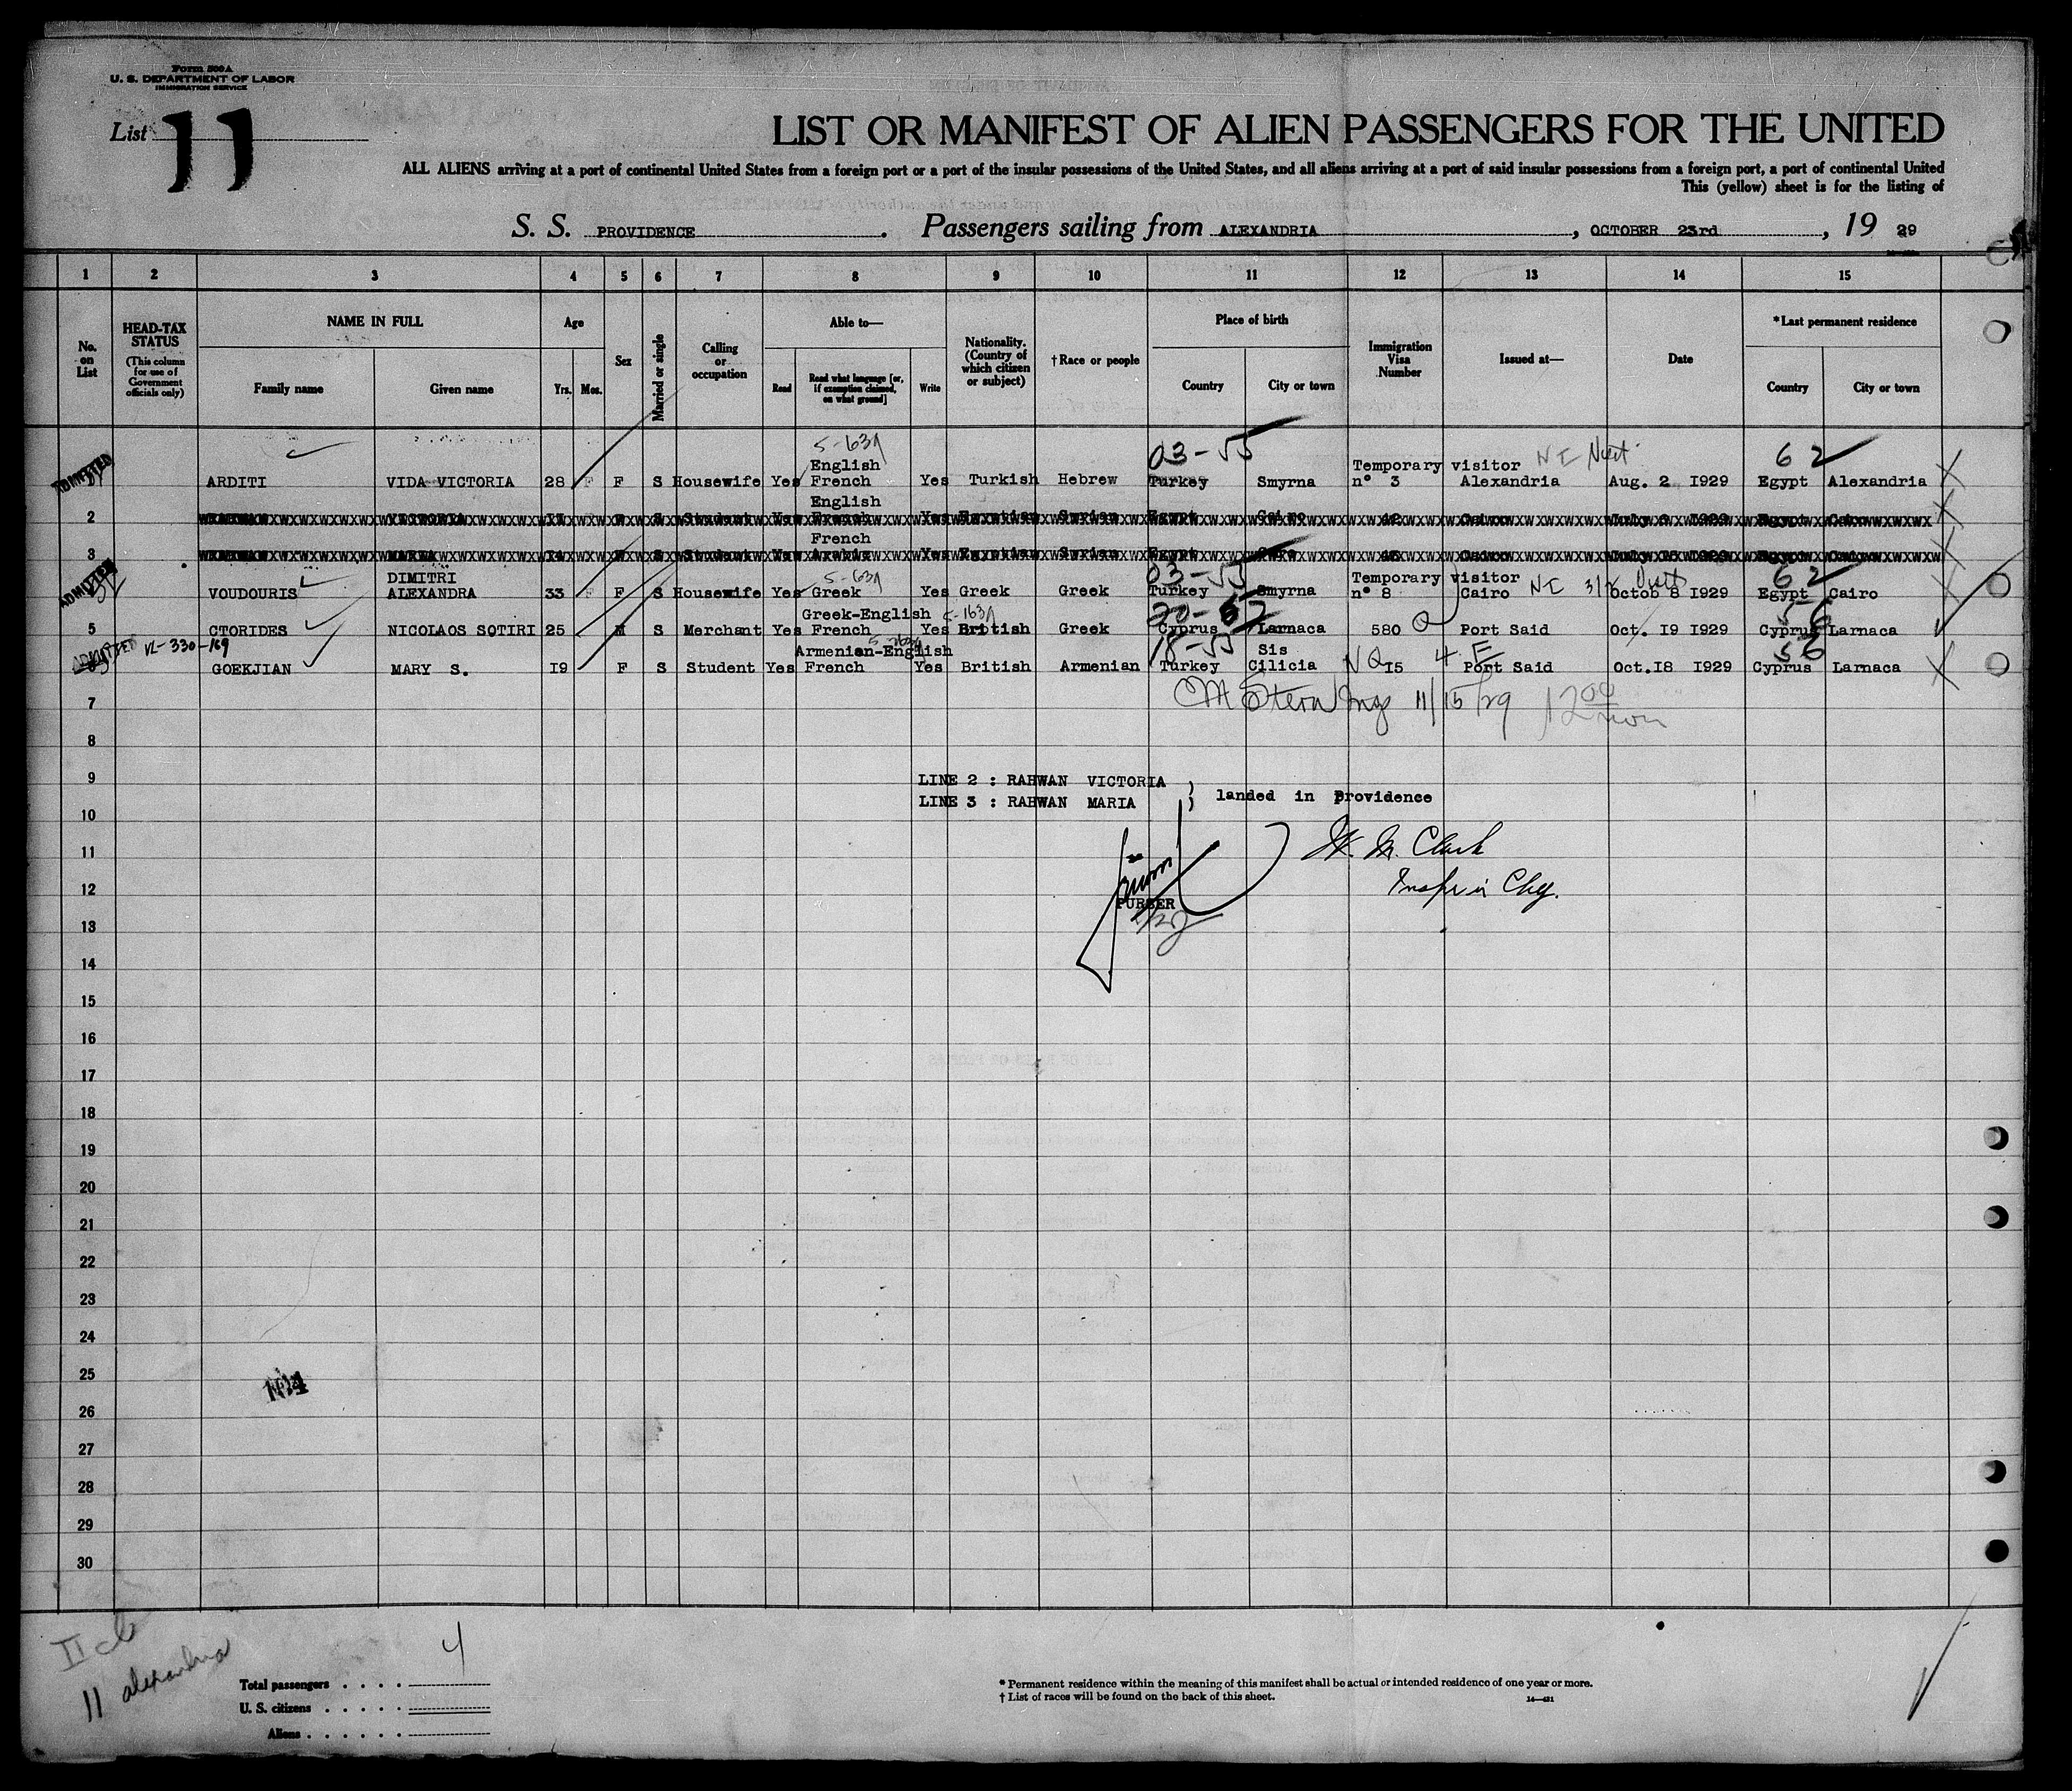 Form 500A
U. S. DEPARTMENT OF LABOR
IMMIGRATION SERVICE
List 11
LIST OR MANIFEST OF ALIEN PASSENGERS FOR THE UNITED
ALL ALIENS arriving at a port of continental United States from a foreign port or a port of the insular possessions of the United States, and all aliens arriving at a port of said insular possessions from a foreign port, a port of continental United
This (yellow) sheet is for the listing of
S. S. PROVIDENCE. Passengers sailing from ALEXANDRIA, OCTOBER 23rd, 19 29
1 2 3 4 5 6 7 8 9 10 11 12 13 14 15
No. on List
HEAD-TAX STATUS (This column for use of Government officials only)
NAME IN FULL Family name Given name
Age Yrs. Mos.
Sex
Married or single
Calling or occupation
Able to— Read Read what language [or, if exemption claimed, on what ground] Write
Nationality. (Country of which citizen or subject)
†Race or people
Place of birth Country City or town
Immigration Visa Number
Issued at—
Date
*Last permanent residence Country City or town
5-639 03-55 62
ADMITTED ARDITI VIDA VICTORIA 28 F S Housewife Yes English French Yes Turkish Hebrew Turkey Smyrna Temporary visitor n° 3 Alexandria Aug. 2 1929 Egypt Alexandria
2 VICTORIA S Student Yes English French Yes Egyptian Syrian Egypt Cairo Cairo 1929 Egypt Cairo
3 MARIA 14 S Student Yes French Arabic Yes Egyptian Syrian Egypt Cairo 1929 Egypt Cairo
5-639 03-55 NE 62
ADMITTED VOUDOURIS DIMITRI ALEXANDRA 33 F S Housewife Yes Greek Yes Greek Greek Turkey Smyrna Temporary visitor n° 8 Cairo Octob 8 1929 Egypt Cairo
5 CTORIDES NICOLAOS SOTIRI 25 M S Merchant Yes Greek-English French Yes British Greek Cyprus Larnaca 580 Port Said Oct. 19 1929 Cyprus Larnaca
ADMITTED VL-330-169 18-55 NQ 56
GOEKJIAN MARY S. 19 F S Student Yes Armenian-English French Yes British Armenian Turkey Sis Cilicia 15 Port Said Oct.18 1929 Cyprus Larnaca
7 11/15/29 12 00 noon
8
9 LINE 2 : RAHWAN VICTORIA
LINE 3 : RAHWAN MARIA landed in Providence
10
11 Clark
12
PURSER
13
14
15
16
17
18
19
20
21
22
23
24
25
26
27
28
29
30
11 alexandria
4
Total passengers
U. S. citizens
Aliens
* Permanent residence within the meaning of this manifest shall be actual or intended residence of one year or more.
† List of races will be found on the back of this sheet.
14—431